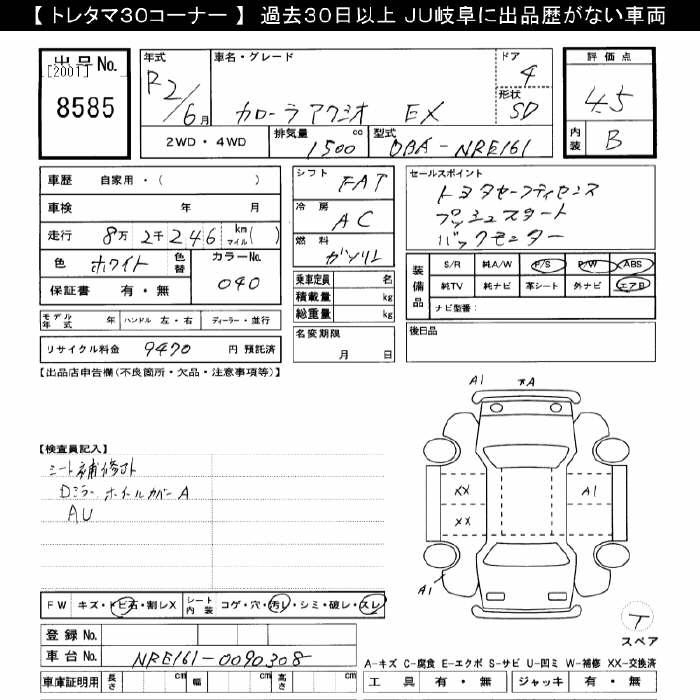 【 トレタマ30コーナー 】 過去30日以上 JU岐阜に出品歴がない車両
出品No.
[2001]
8585
年式
R2/6月
車名・グレード
カローラアクシオ EX
ドア
4
形状
SD
評価点
4.5
内装
B
2WD・4WD
排気量
1500 cc
型式
DBA-NRE161
車歴 自家用・( )
車検 年 月
走行 8万2千246 km マイル( )
色 ホワイト 色替
カラーNo.
040
保証書 有・無
シフト
FAT
冷房
AC
燃料
ガソリン
セールスポイント
トヨタセーフティセンス
プッシュスタート
バックモニター
乗車定員 名
積載量 kg
総重量 kg
名変期限
月 日
装備品
S/R 純A/W P/S P/W ABS
純TV 純ナビ 革シート 外ナビ エアB
ナビ型番:
後日品
モデル年式 年 ハンドル 左・右 ディーラー・並行
リサイクル料金 9470 円 預託済
【出品店申告欄(不良箇所・欠品・注意事項等)】
【検査員記入】
シート補修跡
Dミラー ホイールカバーA
AU
FW キズ・トビ石・割レX
シート内装 コゲ・穴・汚レ・シミ・破レ・スレ
登録No.
車台No. NRE161-0090308
車庫証明用 長さ cm 幅 cm 高さ cm
A1
XX
XX
A1
A1
スペア
A-キズ C-腐食 E-エクボ S-サビ U-凹ミ W-補修 XX-交換済
工具 有・無 ジャッキ 有・無